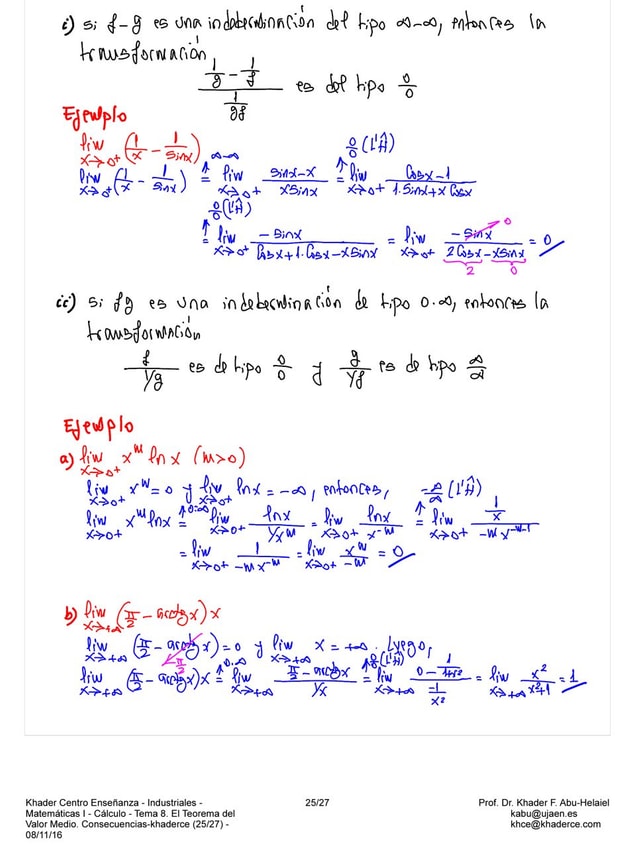 i) si f-g es una indeterminación del tipo ∞-∞, entonces la
transformación
(1/g - 1/f)/(1/gf) es del tipo 0/0
Ejemplo
lim x→0+ (1/x - 1/sinx)
lim x→0+ (1/x - 1/sinx) = ↑∞-∞ lim x→0+ (sinx-x)/(xsinx) = ↑0/0 (L'Ĥ) lim x→0+ (Cosx-1)/(1.sinx+xCosx)
= ↑0/0 (L'Ĥ) lim x→0+ (-sinx)/(Cosx+1.Cosx-xsinx) = lim x→0+ (-sinx → 0)/(2Cosx-xsinx) = 0
2 0
ii) si fg es una indeterminación de tipo 0.∞, entonces la
transformación
f/(1/g) es de tipo 0/0 y g/(1/f) es de tipo ∞/∞
Ejemplo
a) lim x→0+ x^m lnx (m>0)
lim x→0+ x^m=0 y lim x→0+ lnx=-∞, entonces, -∞/∞ (L'Ĥ)
lim x→0+ x^m lnx = ↑0.∞ lim x→0+ lnx/(1/x^m) = lim x→0+ lnx/x^-m = ↑ lim x→0+ (1/x)/(-m x^-m-1)
= lim x→0+ 1/(-mx^-m) = lim x→0+ x^m/-m = 0
b) lim x→+∞ (π/2 - arctgx)x
lim x→+∞ (π/2 - arctgx)=0 y lim x→+∞ x=+∞. Luego,
lim x→+∞ (π/2 - arctgx)x = ↑0.∞ lim x→+∞ (π/2 - arctgx)/(1/x) = ↑0/0 (L'Ĥ) lim x→+∞ (0 - 1/(1+x²))/(-1/x²) = lim x→+∞ x²/(x²+1) = 1
Khader Centro Enseñanza - Industriales -
Matemáticas I - Cálculo - Tema 8. El Teorema del
Valor Medio. Consecuencias-khaderce (25/27) -
08/11/16
25/27
Prof. Dr. Khader F. Abu-Helaiel
kabu@ujaen.es
khce@khaderce.com